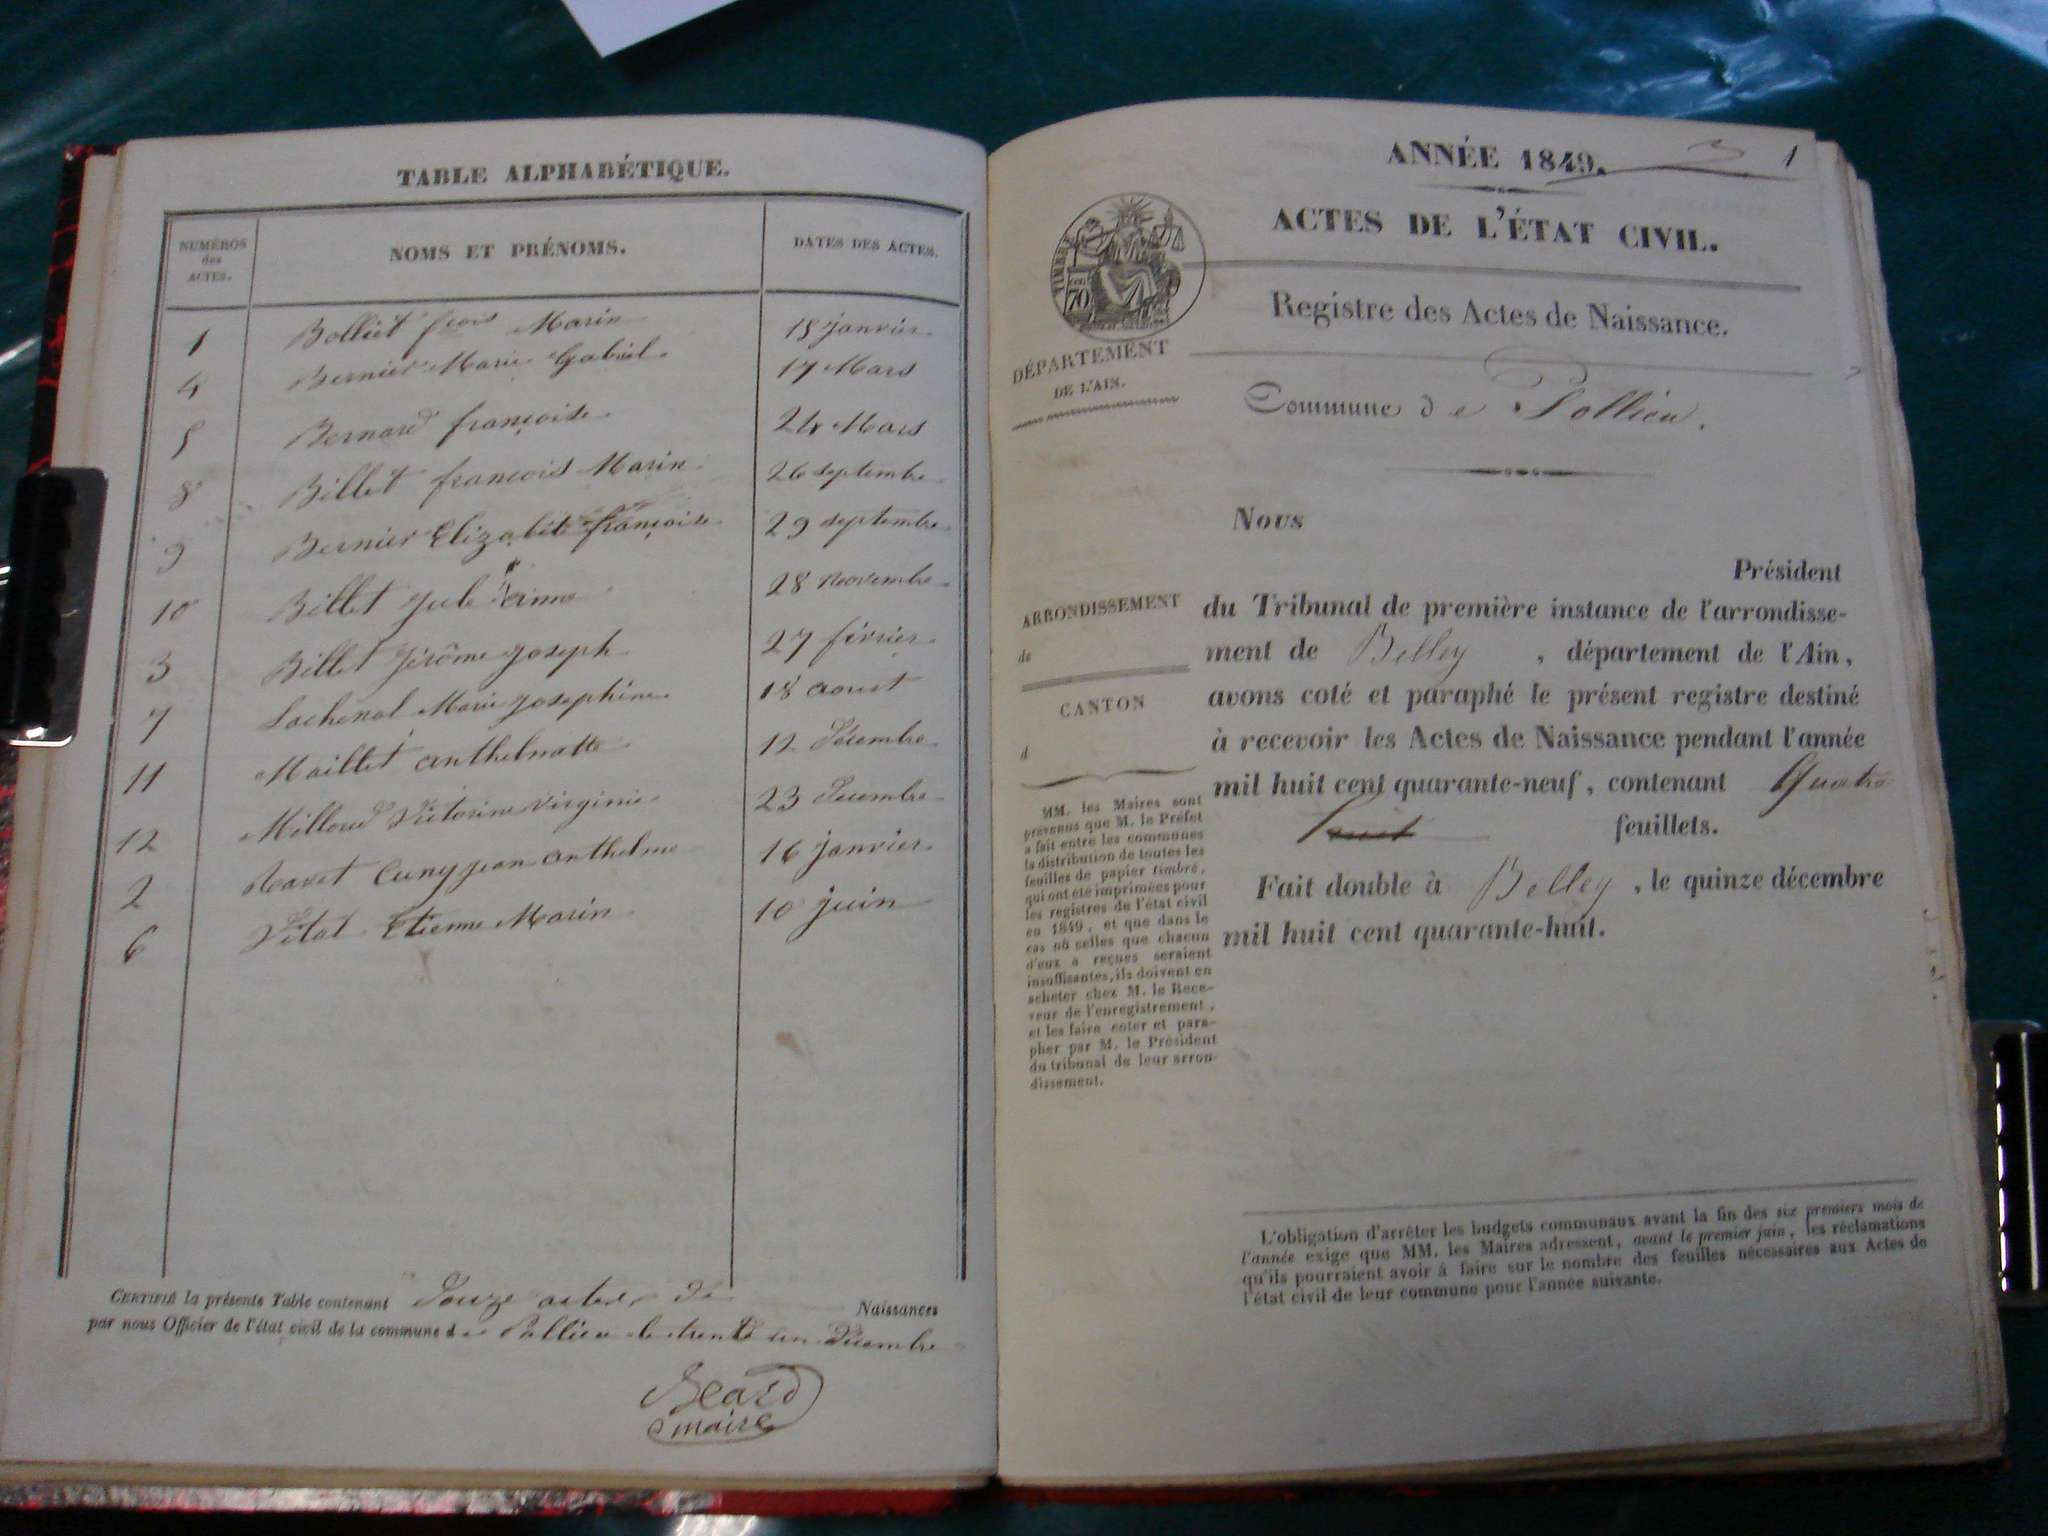 TABLE ALPHABÉTIQUE.
NUMÉROS des ACTES. NOMS ET PRÉNOMS. DATES DES ACTES.
1 Bolliet frois Marin 18 janvier
4 Bernier Marie Gabriel 17 Mars
5 Bernard françoise 24 Mars
8 Billet francois Marin 26 septembre
9 Bernier Elizabete françoise 29 septembre
10 Billet 28 novembre
3 Billet Jérôme joseph 27 février
7 Lachenal Marie josephine 18 aoust
11 Maillet anthelmette 12 Décembre
12 Milloud Victorine virginie 23 Decembre
2 Ravet Cuny jean anthelme 16 janvier
6 Vitat Etienne Marin 10 juin
CERTIFIÉ la présente Table contenant Douze actes de Naissances
par nous Officier de l'état civil de la commune de Pollieu le trente un Décembre
Béard
maire
ANNÉE 1849. 1
ACTES DE L'ÉTAT CIVIL.
TIMBRE
70
Registre des Actes de Naissance.
DÉPARTEMENT
DE L'AIN.
Commune de Pollieu.
Nous
Président
ARRONDISSEMENT
de
CANTON
d
du Tribunal de première instance de l'arrondisse-
ment de Belley, département de l'Ain,
avons coté et paraphé le présent registre destiné
à recevoir les Actes de Naissance pendant l'année
mil huit cent quarante-neuf, contenant Quatre
huit feuillets.
Fait double à Belley, le quinze décembre
mil huit cent quarante-huit.
MM. les Maires sont
prévenus que M. le Préfet
a fait entre les communes
la distribution de toutes les
feuilles de papier timbré,
qui ont été imprimées pour
les registres de l'état civil
en 1849, et que dans le
cas où celles que chacun
d'eux a reçues seraient
insuffisantes, ils doivent en
acheter chez M. le Rece-
veur de l'enregistrement,
et les faire coter et para-
pher par M. le Président
du tribunal de leur arron-
dissement.
L'obligation d'arrêter les budgets communaux avant la fin des six premiers mois de
l'année exige que MM. les Maires adressent, avant le premier juin, les réclamations
qu'ils pourraient avoir à faire sur le nombre des feuilles nécessaires aux Actes de
l'état civil de leur commune pour l'année suivante.